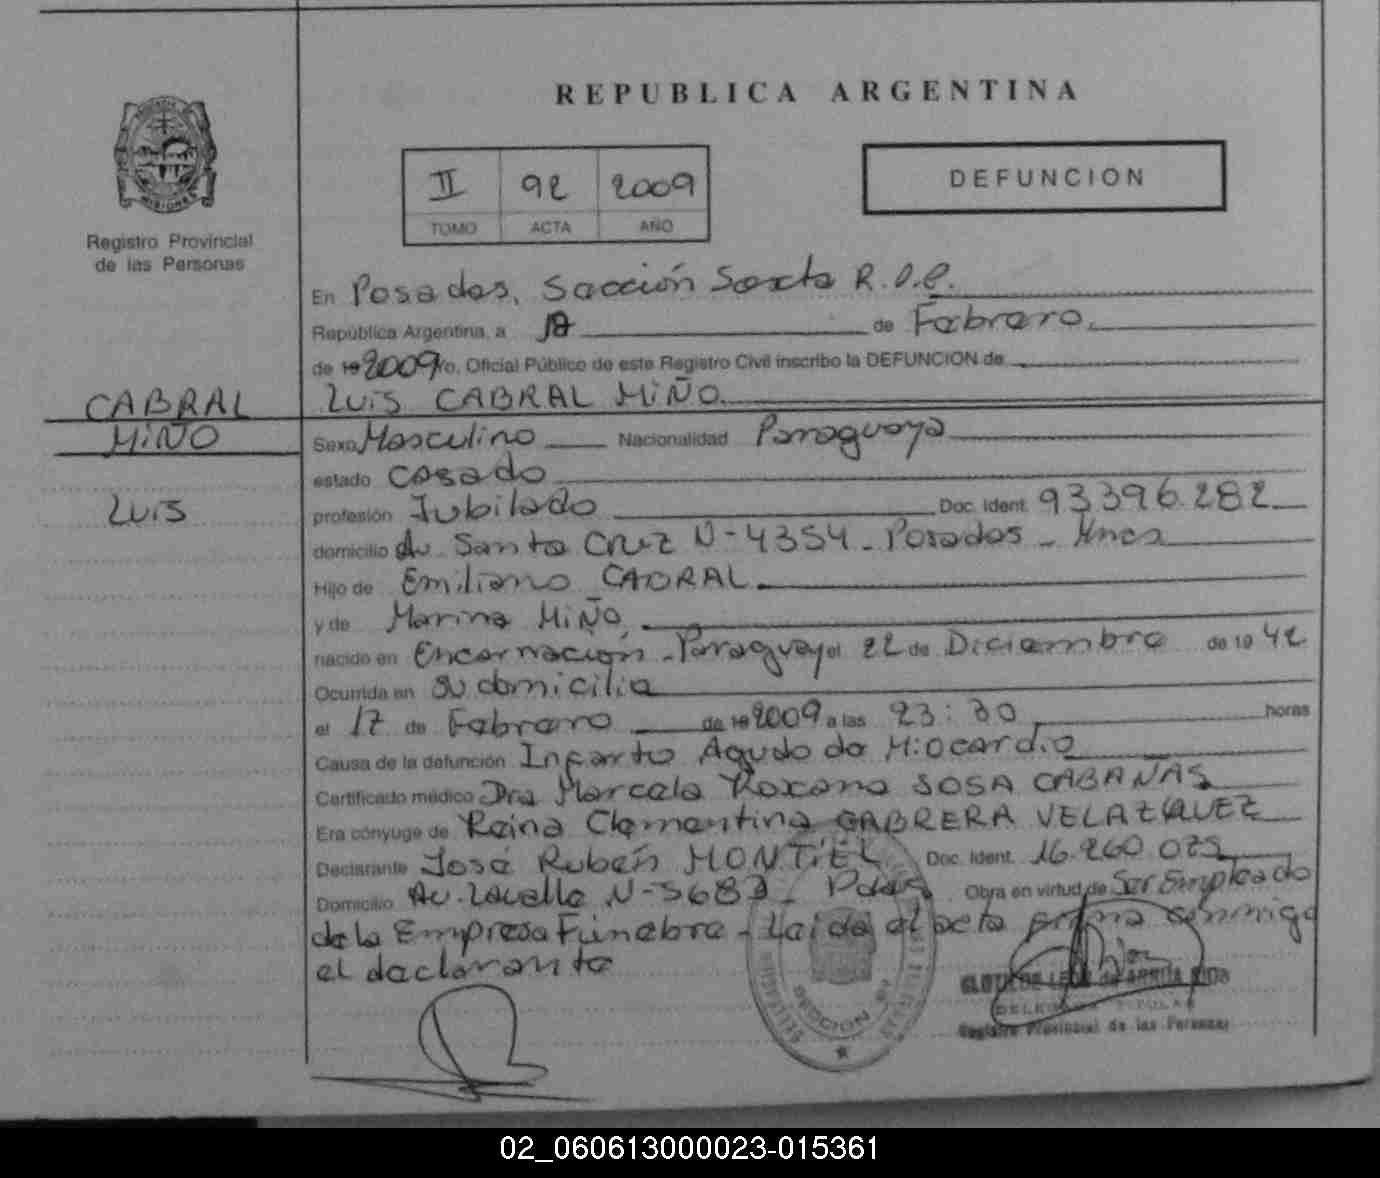 REPUBLICA ARGENTINA
MISIONES
Registro Provincial
de las Personas
II 92 2009
TOMO ACTA AÑO
DEFUNCION
En Posadas, Sección Sexta R.D.P.
República Argentina, a 18 de Febrero
de 19 2009 yo, Oficial Público de este Registro Civil inscribo la DEFUNCION de
CABRAL
MIÑO
LUIS
LUIS CABRAL MIÑO
Sexo Masculino Nacionalidad Paraguaya
estado Casado
profesión Jubilado Doc. Ident. 93396.282
domicilio Av. Santa Cruz N-4354 - Posadas - Mnes
Hijo de Emiliano CABRAL
y de Marina MIÑO
nacido en Encarnación - Paraguay el 22 de Diciembre de 19 42
Ocurrida en su domicilio
el 17 de Febrero de 19 2009 a las 23:30 horas
Causa de la defunción Infarto Agudo de Miocardio
Certificado médico Dra Marcela Roxana SOSA CABAÑAS
Era cónyuge de Reina Clementina CABRERA VELAZQUEZ
Declarante José Rubén MONTIEL Doc. Ident. 16.260.075
Domicilio Av. Lavalle N-5683 - Pdas Obra en virtud de Ser Empleado
de la Empresa Fúnebre - Leída el acta firma conmigo
el declarante
SECCION
DELEGADA TITULAR
Registro Provincial de las Personas
02_060613000023-015361